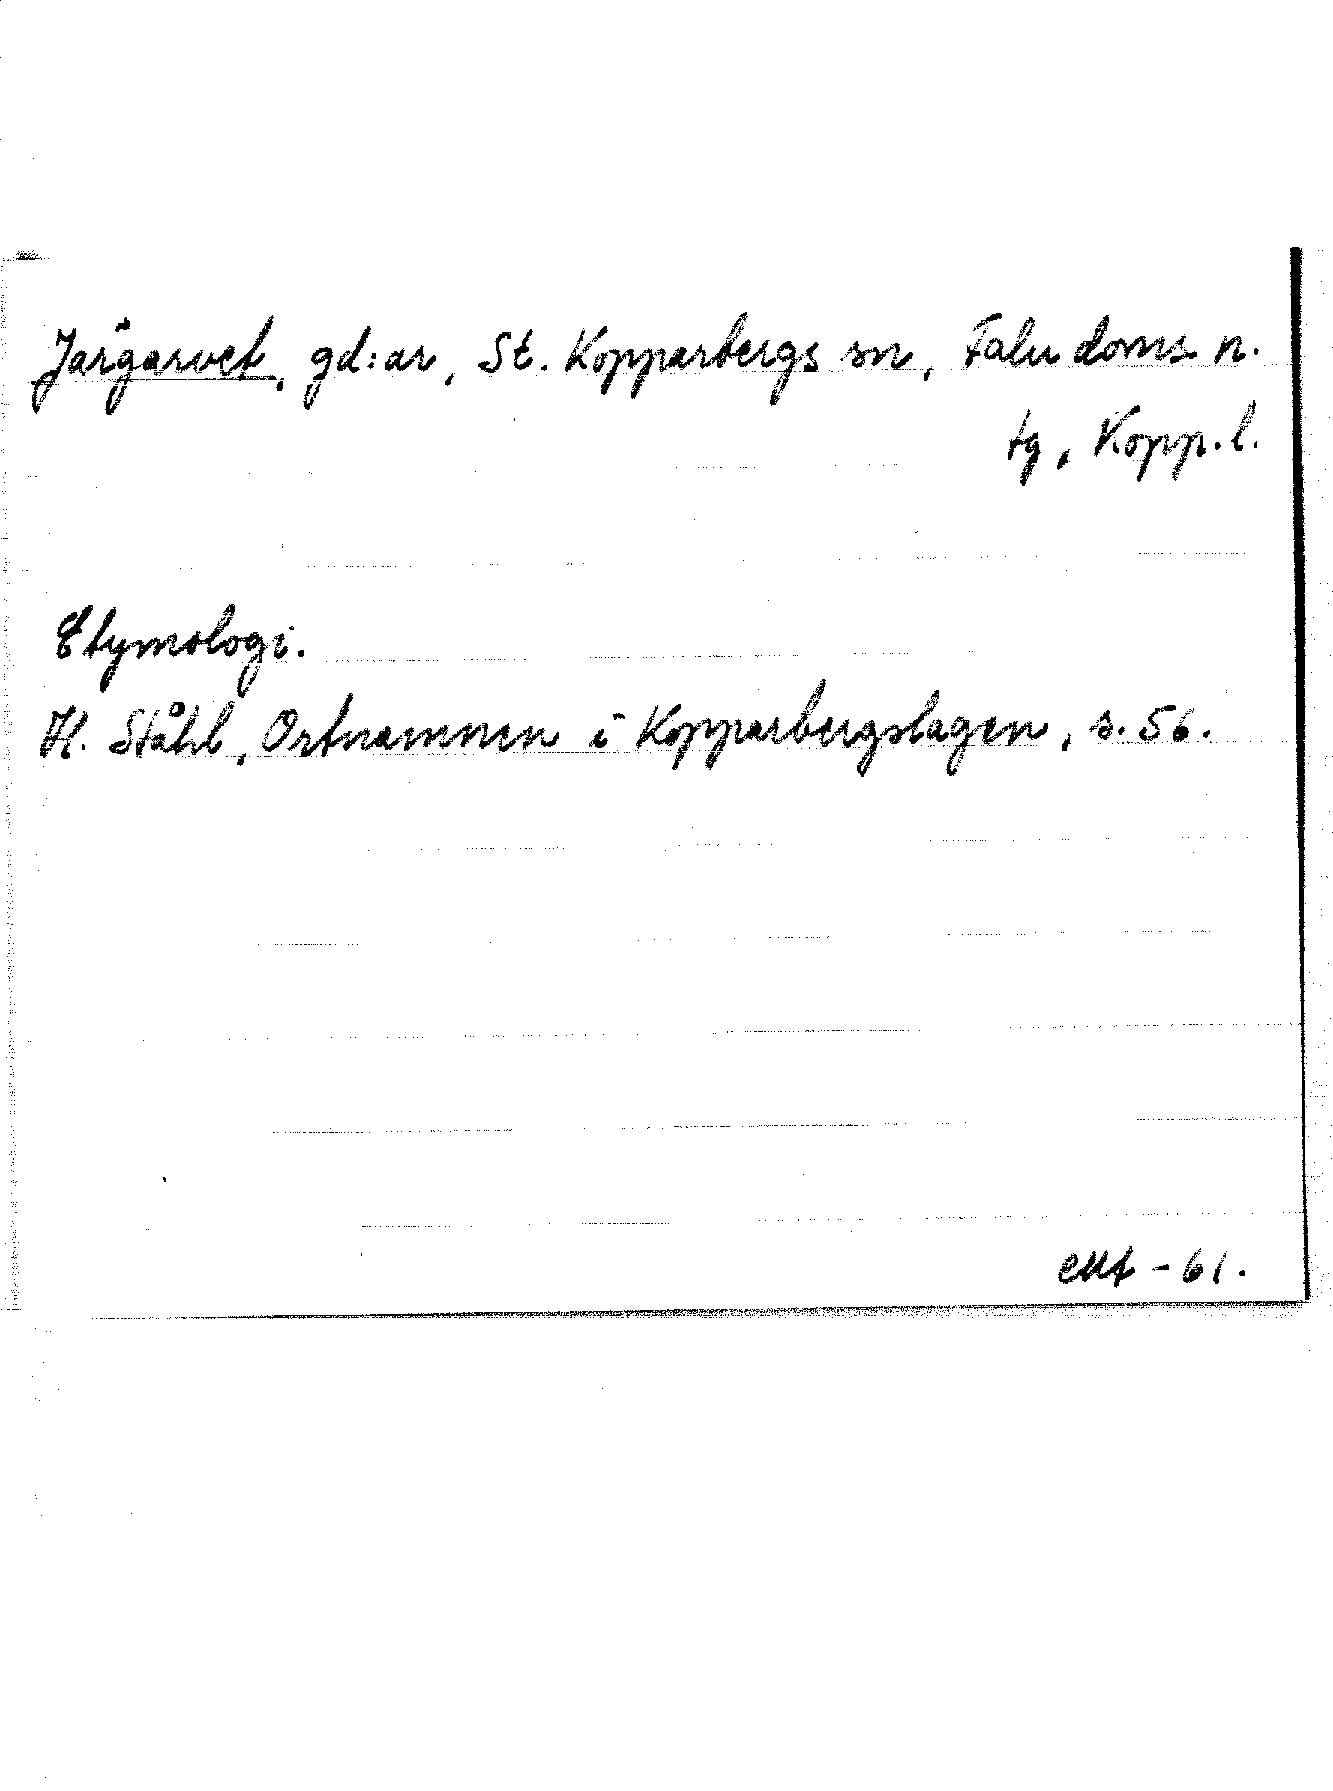 Jargarvet, gd:ar, St. Kopparbergs sn, Falu doms n.
tg, Kopp.l.
Etymologi.
H. Ståhl, Ortnamnen i Kopparbergslagen, s. 56.
-61.